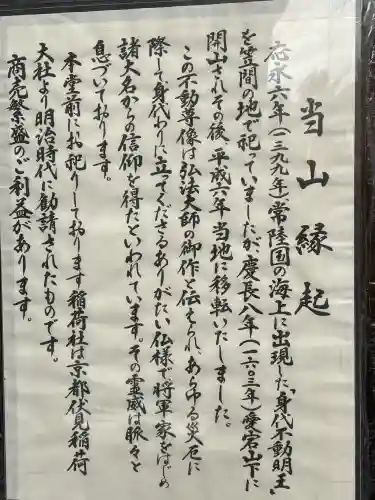 当山縁起
応永六年(一三九九年)常陸国の海上に出現した「身代不動明王」
を笠間の地で祀っていましたが慶長八年(一六〇三年)愛宕山下に
開山されその後 平成六年当地に移転いたしました。
この不動尊像は弘法大師の御作と伝えられ、あらゆる災厄に
際して身代わりに立てくださるありがたい仏様で将軍家をはじめ
諸大名からの信仰を得たといわれています。その霊威は脈々と
息づいております。
本堂前にお祀りしております稲荷社は京都伏見稲荷
大社より明治時代に勧請されたものです。
商売繁盛のご利益があります。